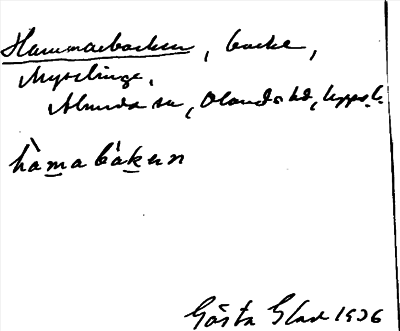 Hammarbacken, backe,
Mysslinge,
Almunda sn, Olands hd, Upps.l.
hàmabákɐn
Gösta Glad 1936